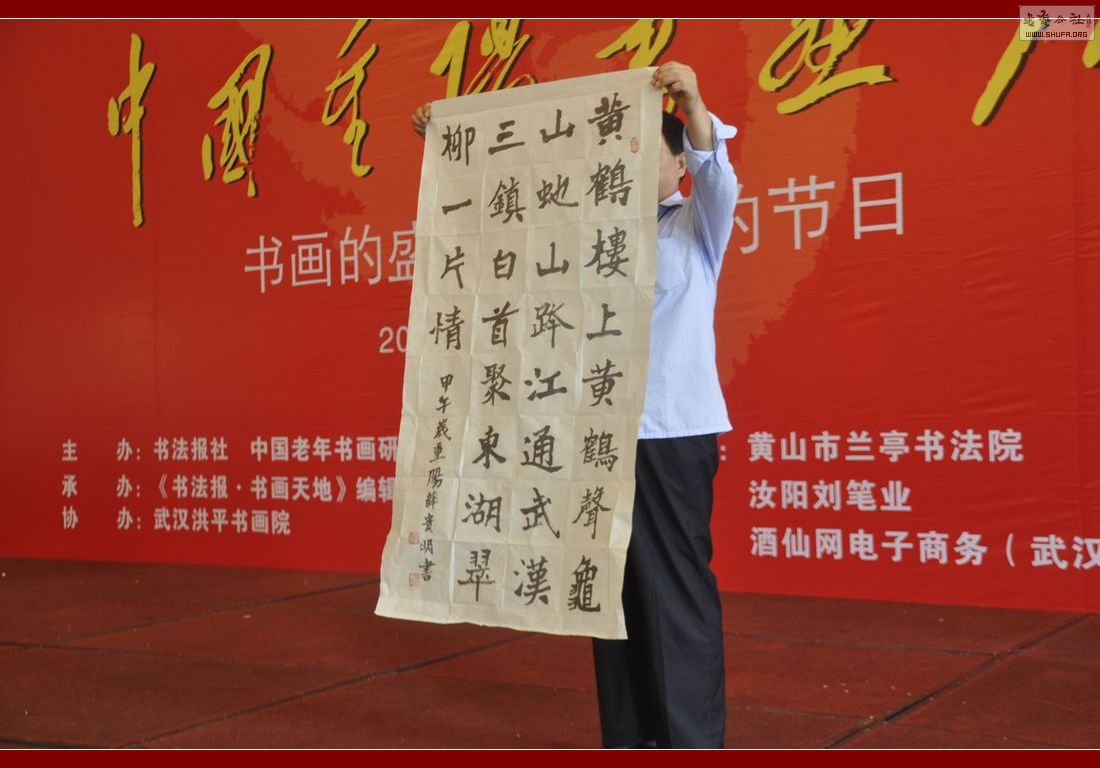 中国重阳书画
书画的盛
的节日
20
主 办：书法报社 中国老年书画研
承 办：《书法报·书画天地》编辑
协 办：武汉洪平书画院
：黄山市兰亭书法院
汝阳刘笔业
酒仙网电子商务（武汉
黄鶴樓上黄鶴聲龜
山虵山跨江通武漢
三鎮白首聚東湖翠
柳一片情
甲午歲重陽薛貴明書
WWW.SHUFA.ORG